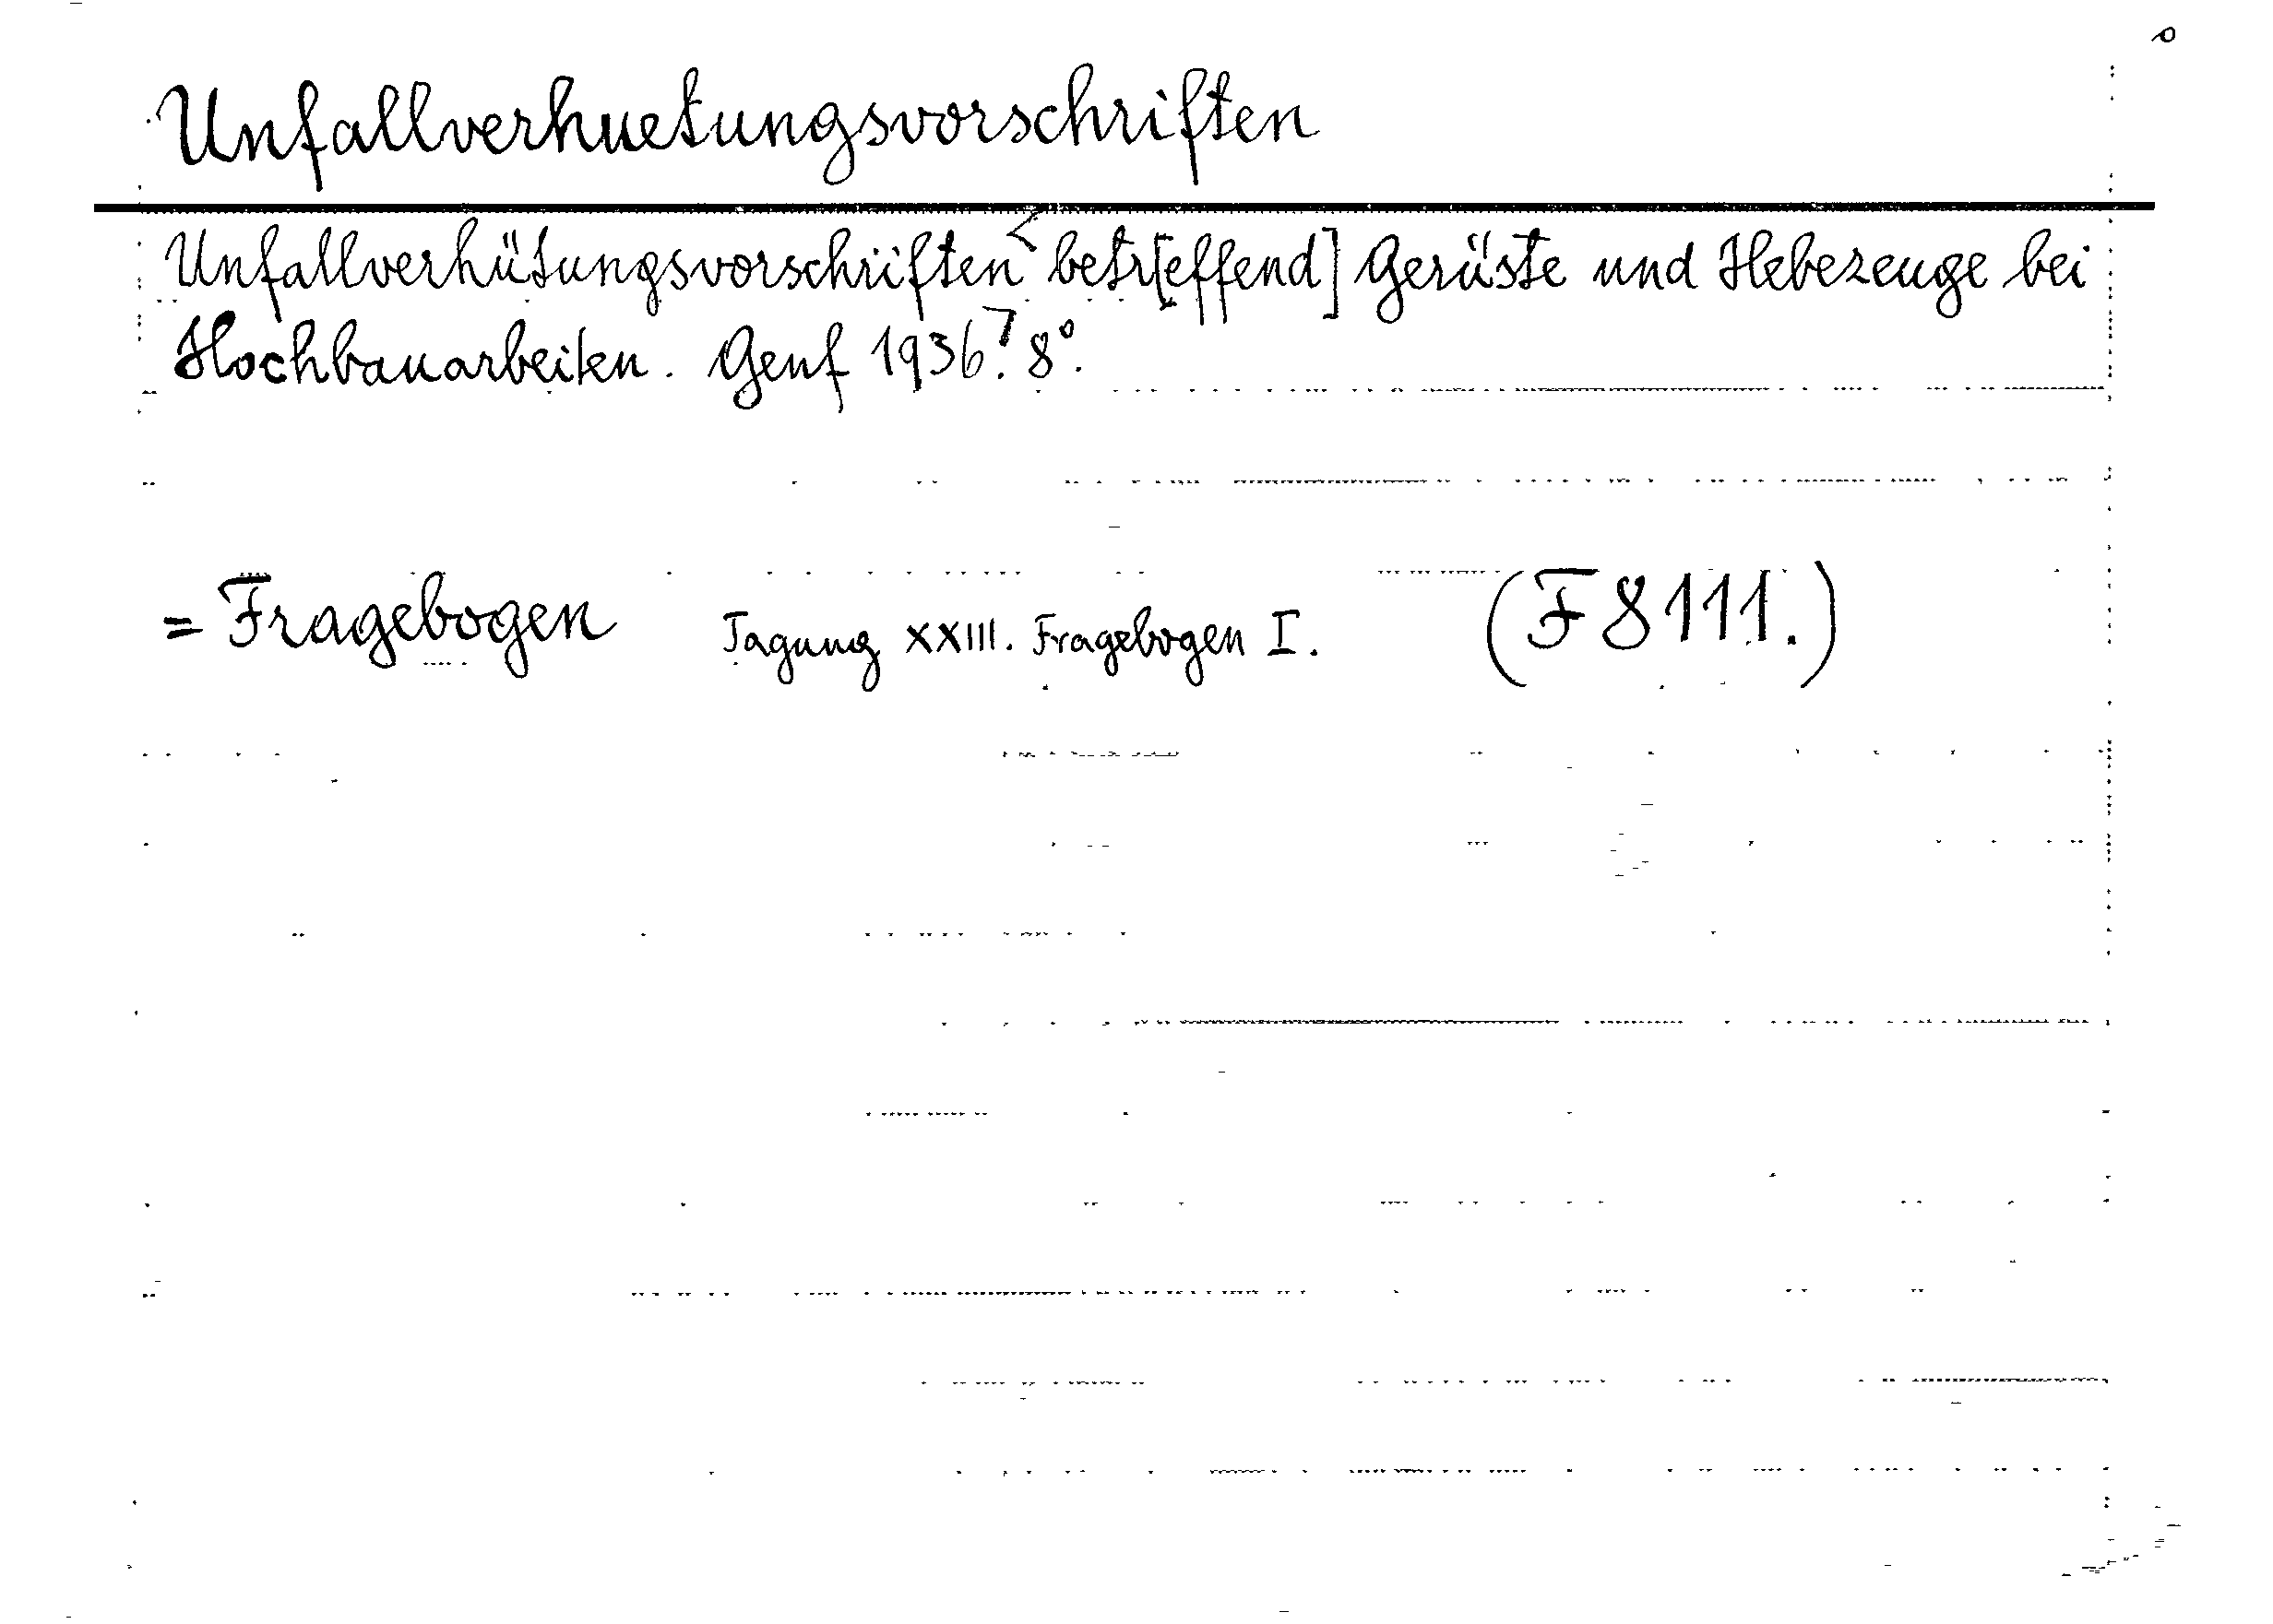 Unfallverhuetungsvorschriften
Unfallverhütungsvorschriften betr[effend] Gerüste und Hebezeuge bei
Hochbauarbeiten. Genf 1936. 8°.
= Fragebogen Tagung XXIII. Fragebogen I. (F 8111.)